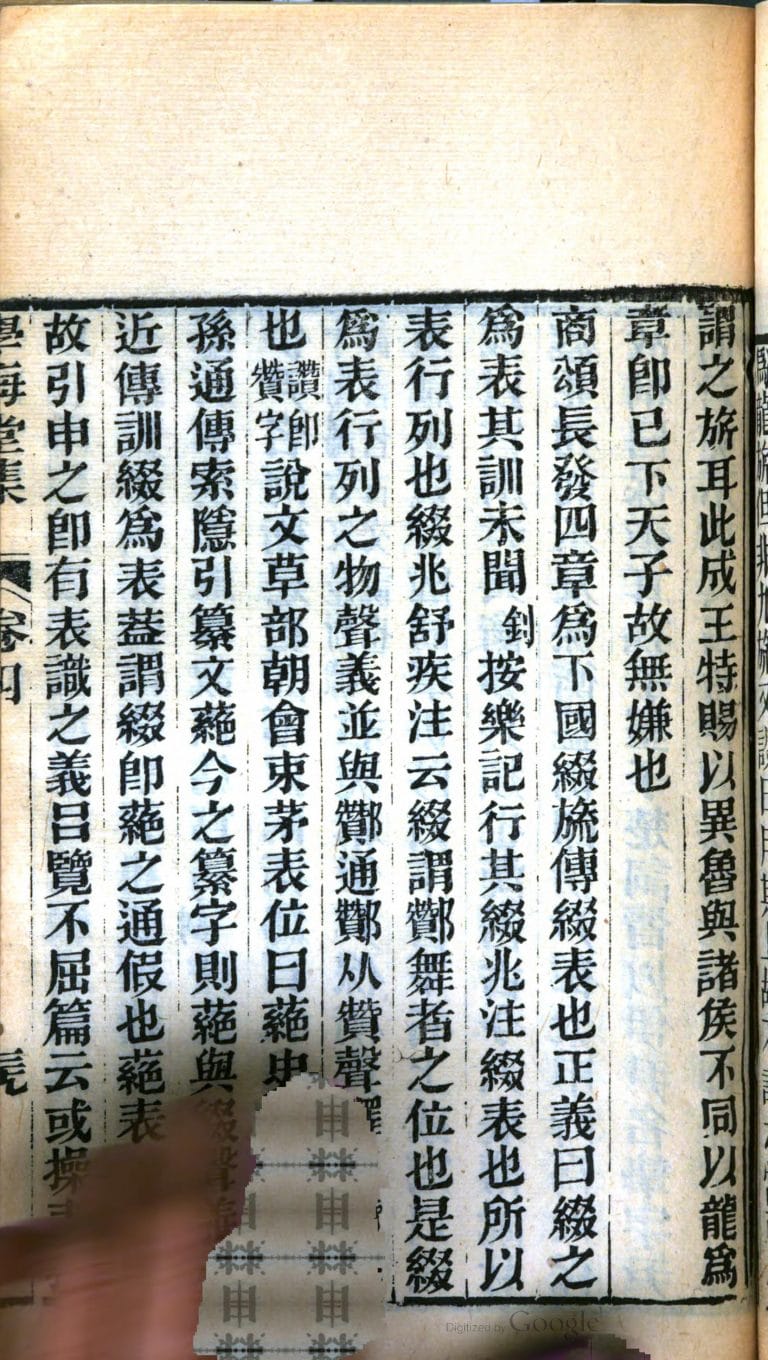 謂之旂耳此成王特賜以異魯與諸侯不同以龍爲
章卽已下天子故無嫌也
商頌長發四章爲下國綴旒傳綴表也正義曰綴之
爲表其訓未聞 釗按樂記行其綴兆注綴表也所以
表行列也綴兆舒疾注云綴謂酇舞者之位也是綴
爲表行列之物聲義並與酇通酇从贊聲
也讚卽贊字說文草部朝會束茅表位曰蕝史
孫通傳索隱引纂文蕝今之纂字則蕝與綴聲
近傳訓綴爲表葢謂綴卽蕝之通假也蕝表
故引申之卽有表識之義呂覽不屈篇云或操表
學海堂集 卷四
Digitized by Google